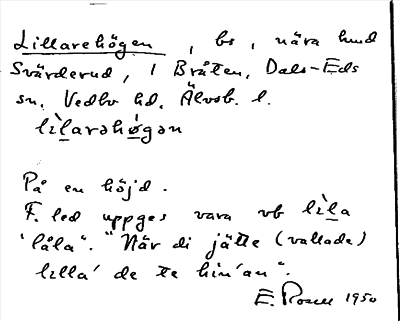 Lillarehögen, bs, nära hmd
Svärderud, 1 Bråten, Dals-Eds
sn, Vedbo hd, Älvsb. l.
lìlarəhǿgən
På en höjd.
F. led uppges vara vb lìla
'låla'. "När di jätte (vallade)
lilla' de te hin'an".
E. Rosell 1950